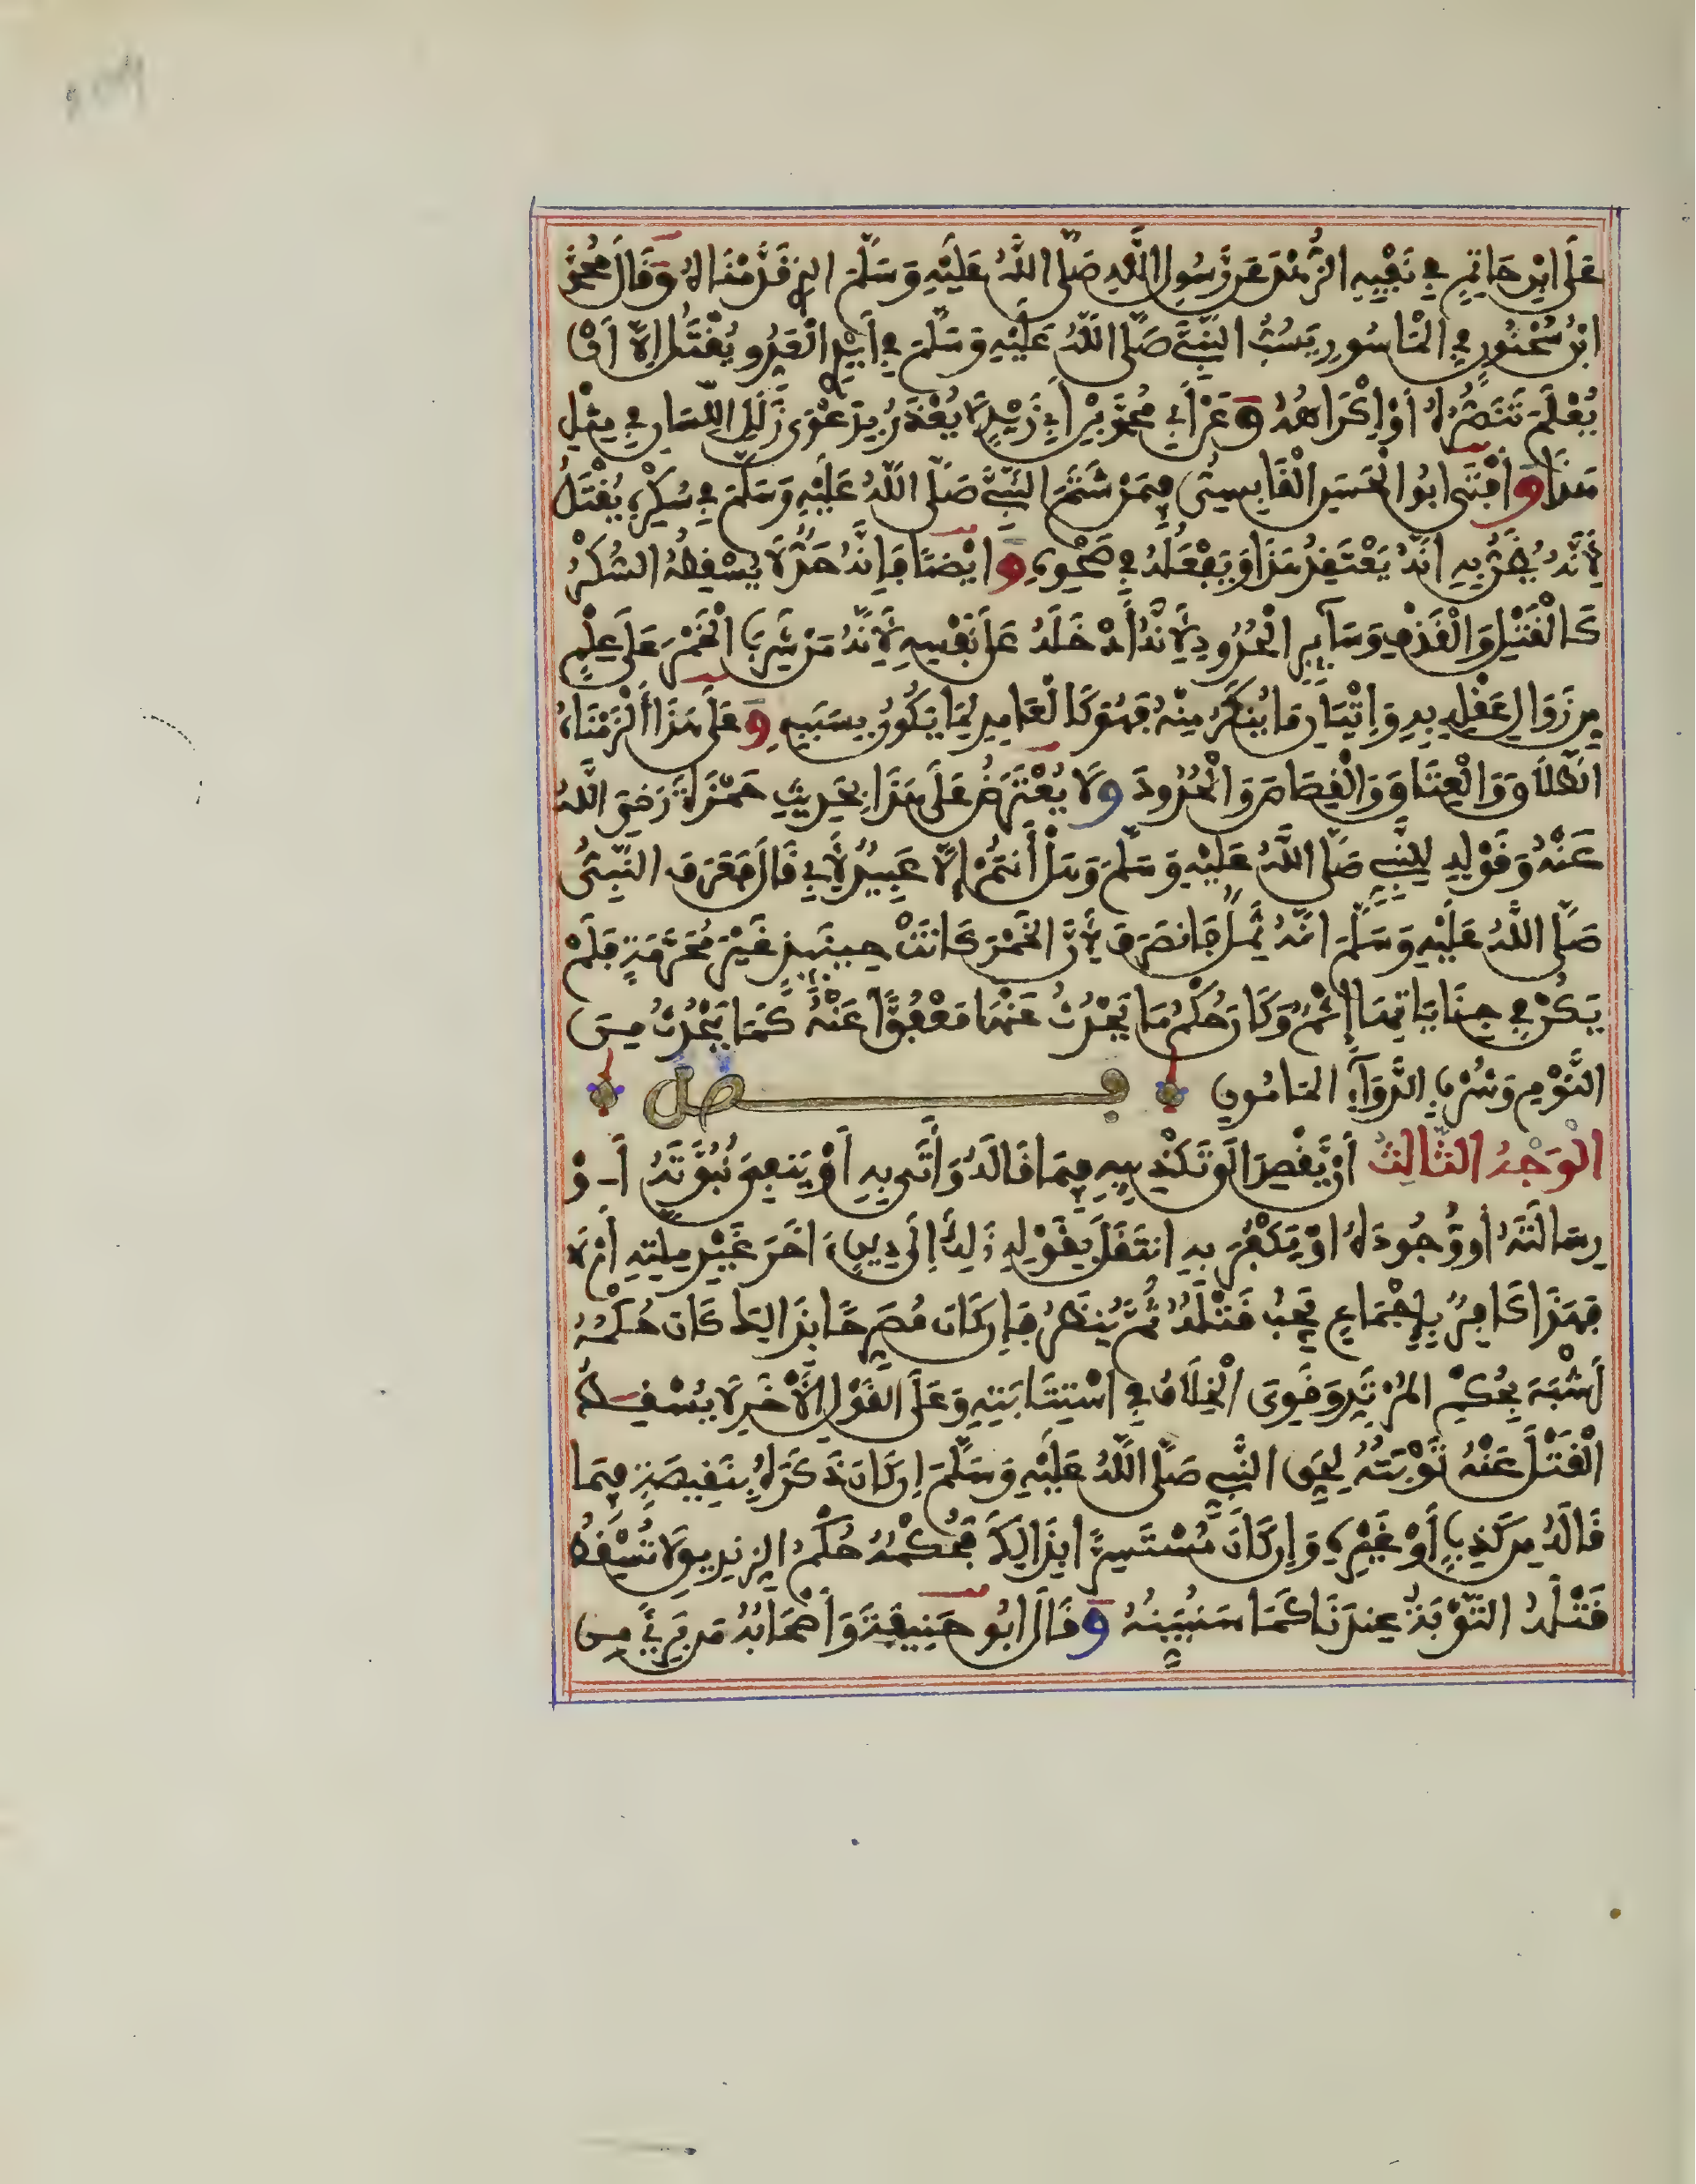 عَلَى ابْنِ حَاتِمٍ فِي نَفْيِهِ الزُّهْدَ عَن رَّسُولِ اللَّهِ صَلَّى اللَّهُ عَلَيْهِ وَسَلَّمَ الذِي قَدَّمْنَاهُ وَقَالَ مُحَمَّدُ
ابْنُ سُحْنُونٍ فِي الْمَاسُورِ يَسُبُّ النَّبِيَّ صَلَّى اللَّهُ عَلَيْهِ وَسَلَّمَ فِي أَيْدِي الْعَدُوِّ يُقْتَلُ إِلَّا أَنْ
يُعْلَمَ تَنَصُّرُهُ أَوْ إِكْرَاهُهُ وَعَنْ أَبِي مُحَمَّدِ بْنِ أَبِي زَيْدٍ لَا يُعْذَرُ بِدَعْوَى زَلَلِ اللِّسَانِ فِي مِثْلِ
هَذَا وَأَفْتَى أَبُو الْحَسَنِ الْقَابِسِيُّ فِيمَن شَتَمَ النَّبِيَّ صَلَّى اللَّهُ عَلَيْهِ وَسَلَّمَ فِي سُكْرِهِ يُقْتَلُ
لِأَنَّهُ يُظَنُّ بِهِ أَنَّهُ يَعْتَقِدُ هَذَا وَيَفْعَلُهُ فِي صَحْوِهِ وَأَيْضًا فَإِنَّهُ حَدٌّ لَا يُسْقِطُهُ السُّكْرُ
كَالْقَتْلِ وَالْقَذْفِ وَسَآئِرِ الْحُدُودِ لِأَنَّهُ أَدْخَلَهُ عَلَى نَفْسِهِ لِأَنَّهُ مَنْ شَرِبَ الْخَمْرَ عَلَى عِلْمٍ
مِن زَوَالِ عَقْلِهِ بِهِ وَإِتْيَانِ مَا يُنكَرُ مِنْهُ فَهُوَ كَالْعَامِدِ لِمَا يَكُونُ بِسَبَبِهِ وَعَلَى هَذَا أَلْزَمْنَاهُ
الطَّلَاقَ وَالْعِتَاقَ وَالْقِصَاصَ وَالْحُدُودَ وَلَا يُعْتَرَضُ عَلَى هَذَا بِحَدِيثِ حَمْزَةَ رَضِيَ اللَّهُ
عَنْهُ وَقَوْلِهِ لِلنَّبِيِّ صَلَّى اللَّهُ عَلَيْهِ وَسَلَّمَ وَهَلْ أَنتُمْ إِلَّا عَبِيدٌ لِأَبِي قَالَ فَعَرَفَ النَّبِيُّ
صَلَّى اللَّهُ عَلَيْهِ وَسَلَّمَ أَنَّهُ ثَمِلٌ فَانصَرَفَ لِأَنَّ الْخَمْرَ كَانَتْ حِينَئِذٍ غَيْرَ مُحَرَّمَةٍ فَلَمْ
يَكُنْ فِي جِنَايَاتِهَا إِثْمٌ وَكَانَ حُكْمُ مَا يَحْدُثُ عَنْهَا مَعْفُوًّا عَنْهُ كَمَا يَحْدُثُ مِنَ
النَّوْمِ وَشُرْبِ الدَّوَآءِ الْمَامُونِ فصل
الْوَجْهُ الثَّالِثُ أَن يَّقْصِدَ إِلَى تَكْذِيبِهِ فِيمَا قَالَهُ وَأَتَى بِهِ أَوْ يَنفِيَ نُبُوَّتَهُ أَوْ
رِسَالَتَهُ أَو وُّجُودَهُ أَوْ يَكْفُرَ بِهِ انتَقَلَ بِقَوْلِهِ ذَلِكَ إِلَى دِينٍ آخَرَ غَيْرِ مِلَّتِهِ أَمْ لَا
فَهَذَا كَافِرٌ بِإِجْمَاعٍ يَجِبُ قَتْلُهُ ثُمَّ يُنظَرُ فَإِن كَانَ مُصَرِّحًا بِذَالِكَ كَانَ حُكْمُهُ
أَشْبَهَ بِحُكْمِ الْمُرْتَدِّ وَقَوِيَ الْخِلَافُ فِي اسْتِتَابَتِهِ وَعَلَى الْقَوْلِ الْأَخَرِ لَا يُسْقِطُ
الْقَتْلَ عَنْهُ تَوْبَتُهُ لِحَقِّ النَّبِيِّ صَلَّى اللَّهُ عَلَيْهِ وَسَلَّمَ إِن كَانَ ذَكَرَهُ بِنَقِيصَةٍ فِيمَا
قَالَهُ مِن كَذِبٍ أَوْ غَيْرِهِ وَإِن كَانَ مُسْتَسِرًّا بِذَالِكَ فَحُكْمُهُ حُكْمُ الزِنْدِيقِ لَا تُسْقِطُ
قَتْلَهُ التَّوْبَةُ عِندَنَا كَمَا سَنُبَيِّنُهُ وَقَالَ أَبُو حَنِيفَةَ وَأَصْحَابُهُ مَن بَرِئَ مِن